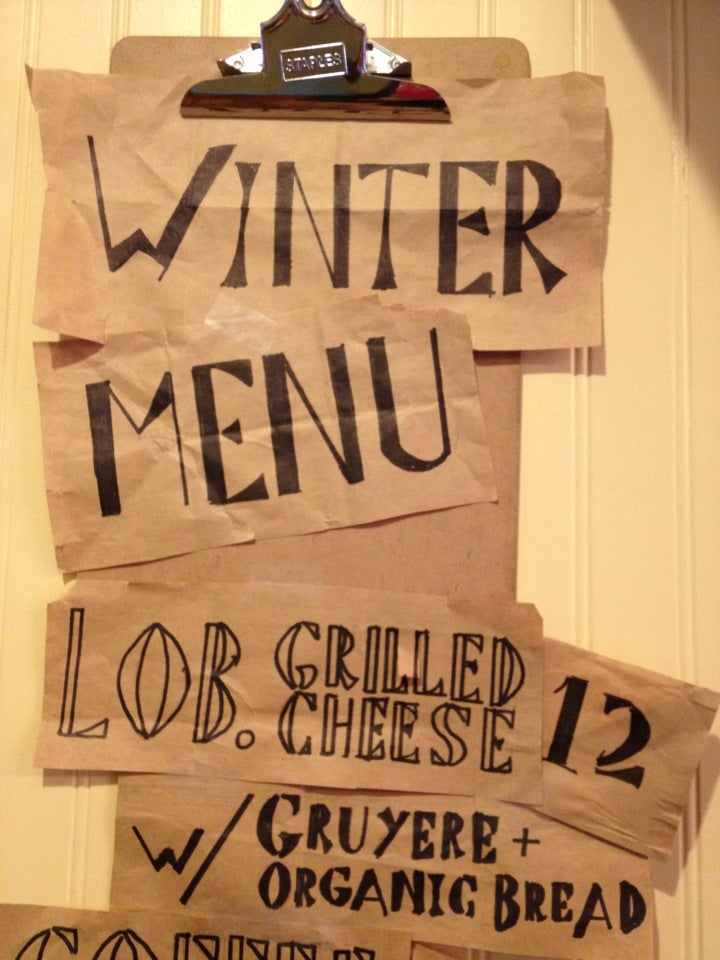 STAPLES
WINTER
MENU
LOB. GRILLED
CHEESE 12
W/ GRUYERE +
ORGANIC BREAD